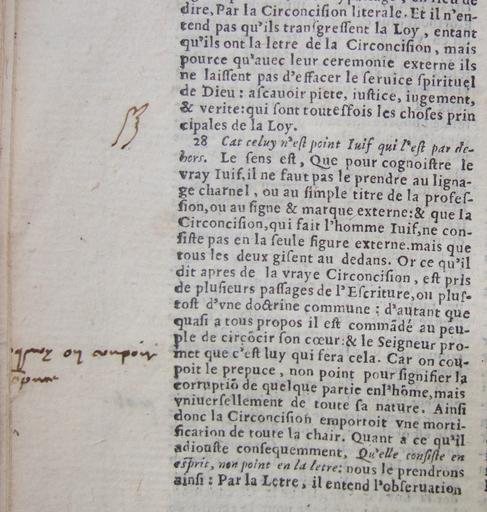 dire, Par la Circoncision literale. Et il n'en-
tend pas qu'ils transgressent la Loy, entant
qu'ils ont la letre de la Circoncision, mais
pource qu'auec leur ceremonie externe ils
ne laissent pas d'effacer le seruice spirituel
de Dieu: ascauoir pieté, iustice, iugement,
& verite: qui sont toutesfois les choses prin
cipales de la Loy.
28 Car celuy n'est point Iuif qui l'est par de-
hors. Le sens est, Que pour cognoistre le
vray Iuif, il ne faut pas le prendre au ligna-
ge charnel, ou au simple titre de la profes-
sion, ou au signe & marque externe: & que la
Circoncision, qui fait l'homme Iuif, ne con-
siste pas en la seule figure externe. mais que
tous les deux gisent au dedans. Or ce qu'il
dit apres de la vraye Circoncision, est pris
de plusieurs passages de l'Escriture, ou plus-
tost d'vne doctrine commune: d'autant que
quasi a tous propos il est commãdé au peu-
ple de circõcir son cœur: & le Seigneur pro-
met que c'est luy qui fera cela. Car on cou-
poit le prepuce, non point pour signifier la
corruptiõ de quelque partie en l'hõme, mais
vniuersellement de toute sa nature. Ainsi
donc la Circoncision emportoit vne morti-
fication de toute la chair. Quant a ce qu'il
adiouste consequemment, Qu'elle consiste en
esprit, non point en la letre: nous le prendrons
ainsi: Par la Letre, il entend l'obseruation